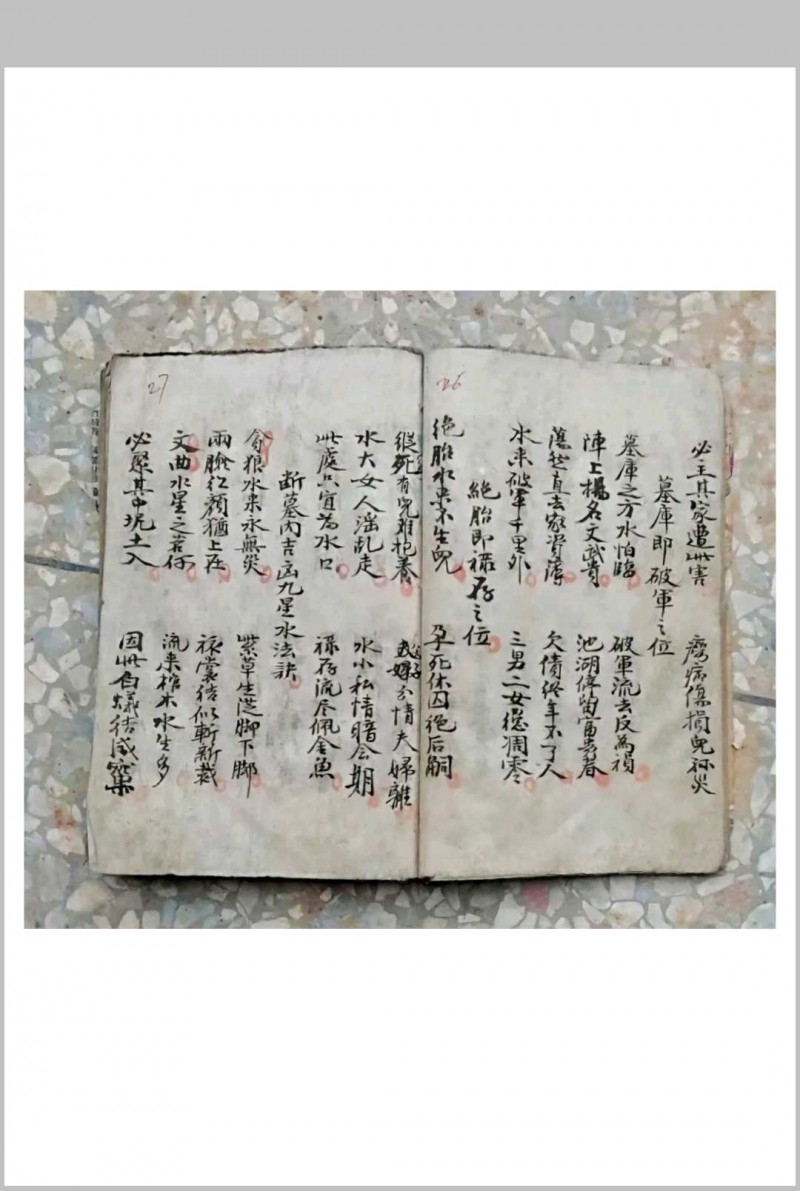 26
必主其家遭此害 癆病傷損見祘災
墓庫即破軍之位
墓庫之方水怕臨 破軍流去反為禎
陣上揚名文武貴 池湖停蓄富春
蕩然直去家資薄 欠債終年不了人
水来破軍千里外 三男二女總凋零
絕胎即禄存之位
絕胎水来不生兒 孕死休囚絕后嗣
27
縱然有兒難抱養 父子分情夫婦離
水大女人淫乱走 水小私情暗会期
此處只宜為水口 禄存流尽佩金魚
断墓内吉凶九星水法訣
貪狼水来永無災 紫草生從脚下
兩臉紅顏猶上在 衣裳結似斬新裁
文曲水星之若何 流来棺木水生多
必聚其中坑土入 因此白蟻結成窠